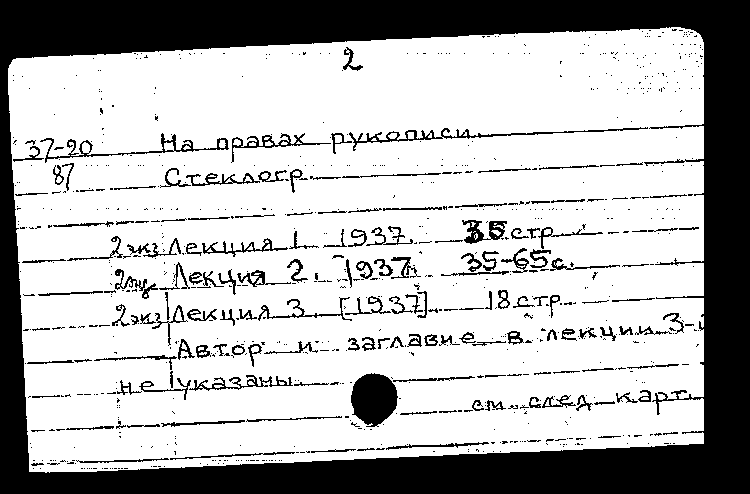 2
37-20 На правах рукописи.
87 Стеклогр.
2 экз Лекция 1. 1937. 35 стр
2 экз. Лекция 2. 1937. 35-65 с.
2 экз Лекция 3. [1937]. 18 стр
Автор и заглавие в лекции 3-й
не указаны.
см. след. карт.